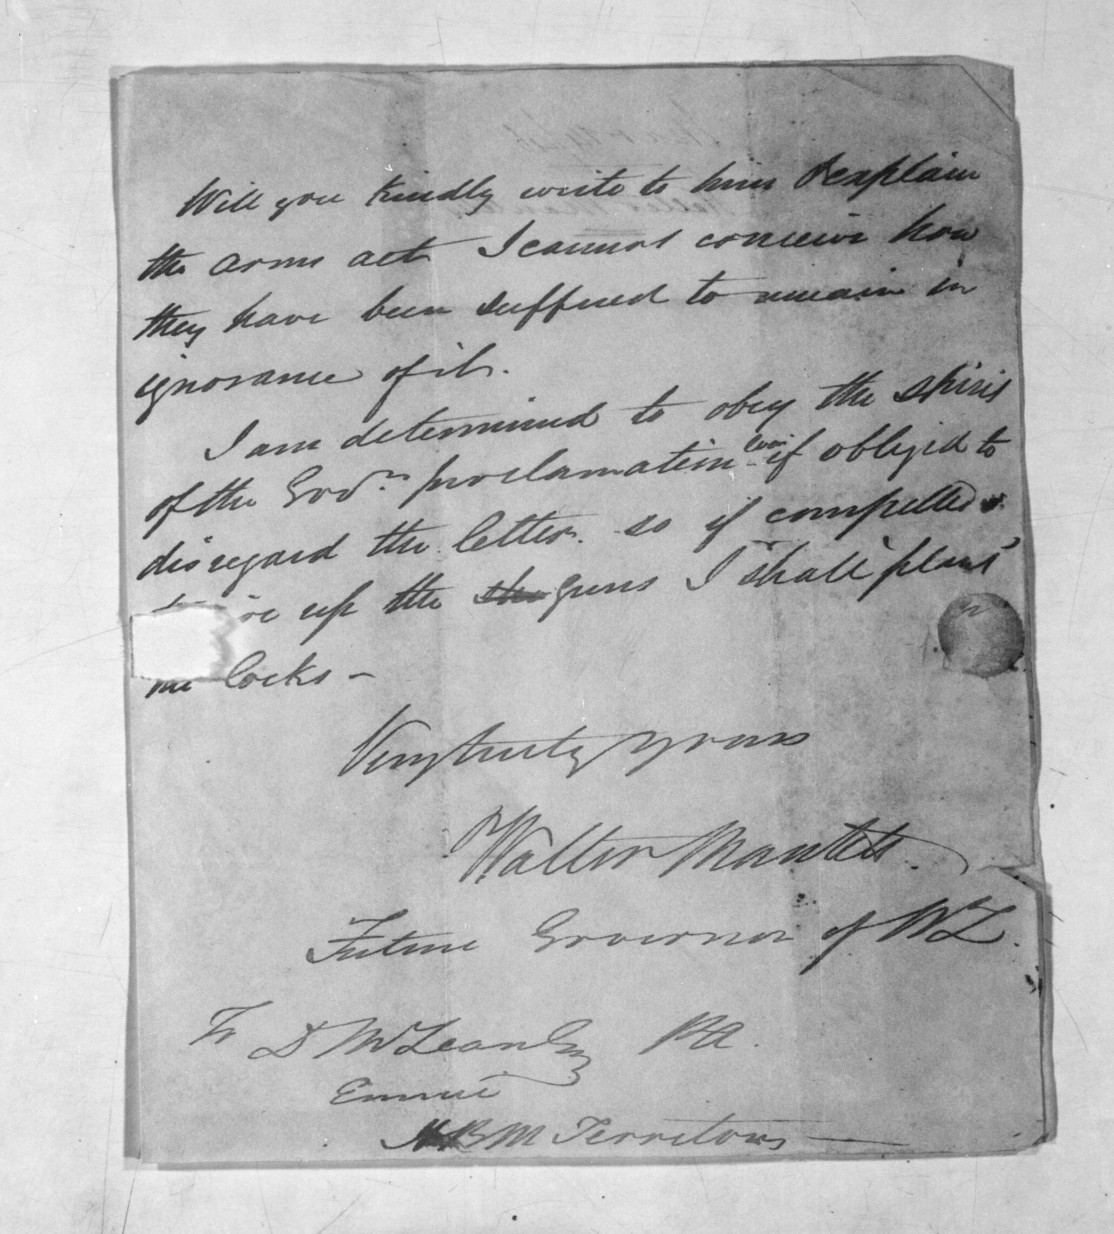 Will you kindly write to him & explain
the arms act I cannot conceive how
they have been suffered to remain in
ignorance of it.
I am determined to obey the spirit
of the Govr. proclamation even if obliged to
disregard the letter. so if compelled
up the the guns I shall
locks –
Very truly yours
Walter Mantell.
Future Governor of NZ.
To D McLean Esq PA.
HBM Territory